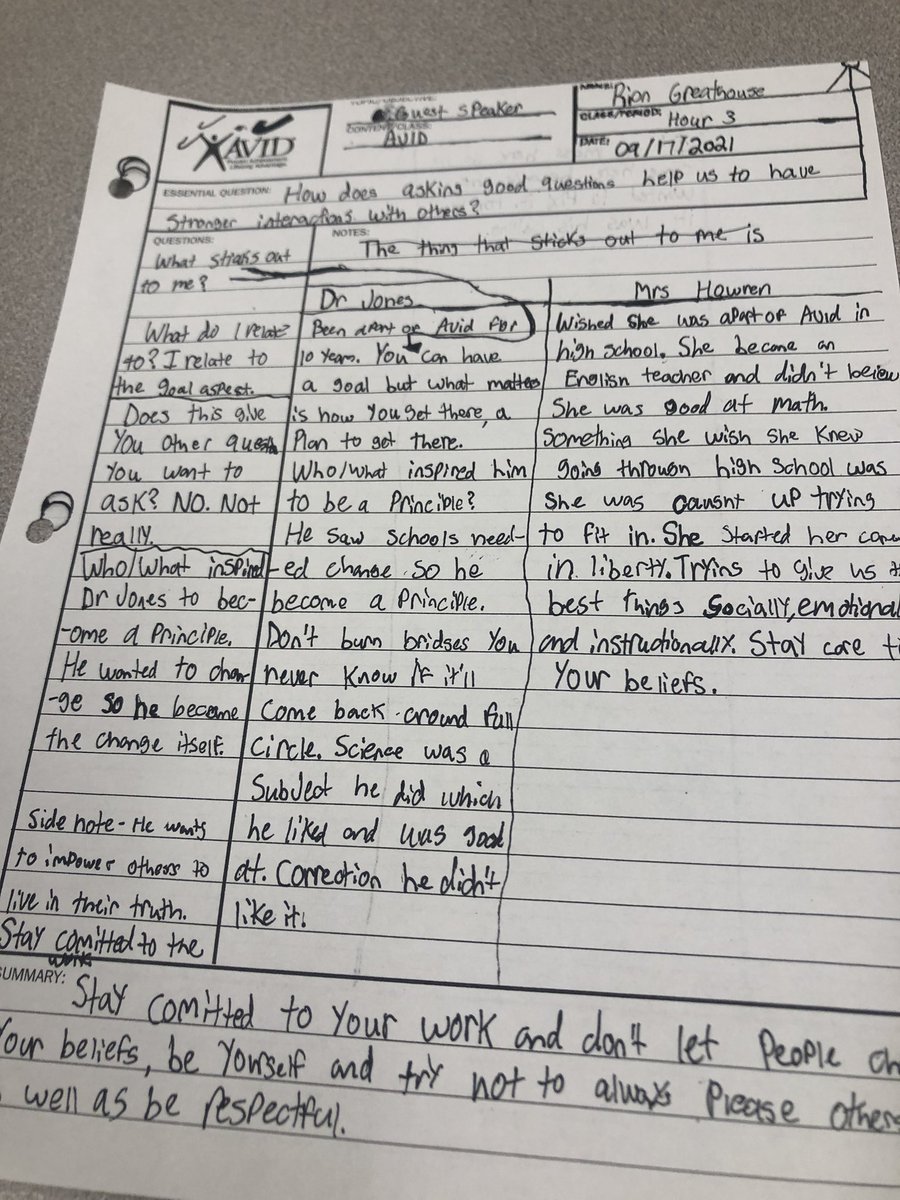 AVID
TOPIC/OBJECTIVE:
Guest Speaker
CONTENT/CLASS:
AVID
NAME: Rion Greathouse
CLASS/PERIOD: Hour 3
DATE: 09/17/2021
ESSENTIAL QUESTION: How does asking good questions help us to have
Stronger interactions with others?
QUESTIONS:
What sticks out
to me?
What do I relate
to? I relate to
the goal aspect.
Does this give
You other
You want to
ask? NO. Not
really.
Who/What inspired
Dr Jones to bec-
-ome a Principle.
He wanted to chan-
-ge so he became
the change itself.
Side note - He wants
to impower others to
live in their truth.
Stay comitted to the
work
NOTES:
The thing that sticks out to me is
Dr Jones
Been apart of Avid for
10 Years. You can have
a goal but what matters
is how You get there, a
Plan to get there.
Who/what inspired him
to be a Principle?
He saw schools need-
-ed change so he
become a Principle.
Don't burn bridges You
never know if it'll
come back around full
circle. Science was a
Subject he did which
he liked and was good
at. Correction he didn't
like it.
Mrs Howren
Wished she was apart of Avid in
high school. She became an
English teacher and didn't
She was good at math.
Something she wish she knew
going through high school was
she was caught up trying
to fit in. She started her
in liberty. Trying to give us
best things socially, emotional
and instructionally. Stay core
Your beliefs.
SUMMARY:
Stay comitted to your work and don't let people
Your beliefs, be Yourself and try not to always please others
well as be respectful.